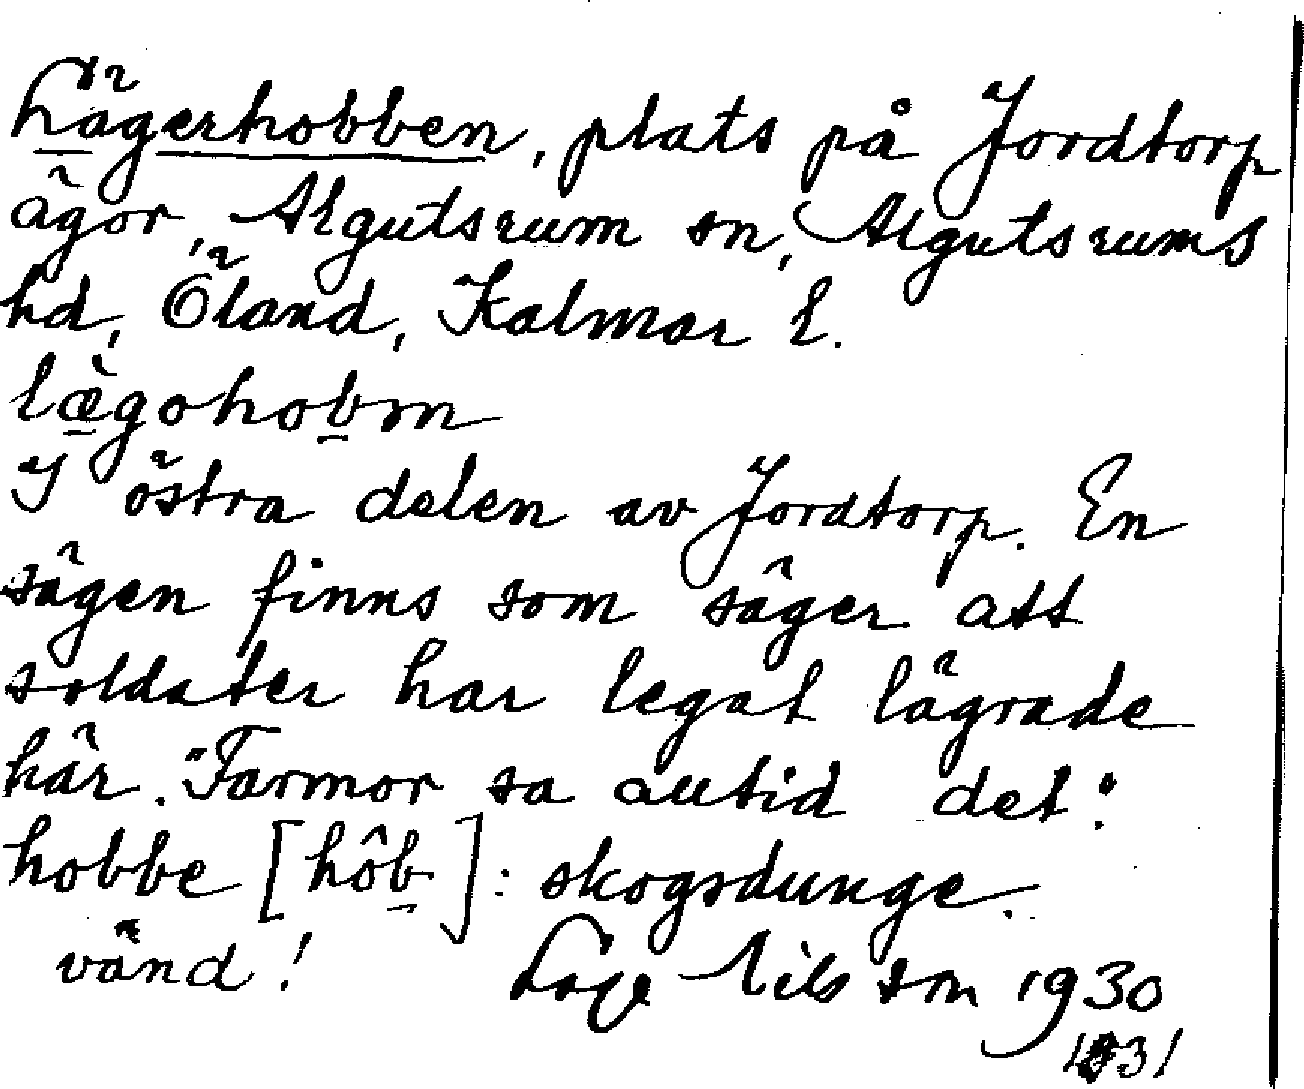 Lägerhobben, plats på Jordtorp
ägor, Algutsrum sn, Algutsrums
hd, Öland, Kalmar l.
lægohobm
I östra delen av Jordtorp. En
sägen finns som säger att
soldater har legat lägrade
här. "Farmor sa alltid det":
hobbe [hôb]: skogsdunge.
vänd! Lage Nilsson 1930
1931